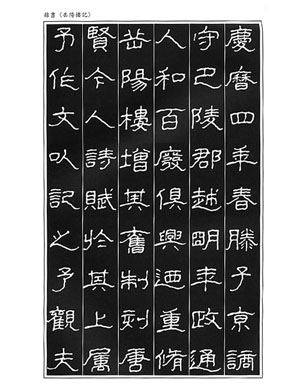 隸書《岳陽樓記》
慶曆四年春滕子京謫
守巴陵郡越明年政通
人和百廢俱興迺重脩
岳陽樓增其舊制刻唐
賢今人詩賦於其上属
予作文以記之予觀夫